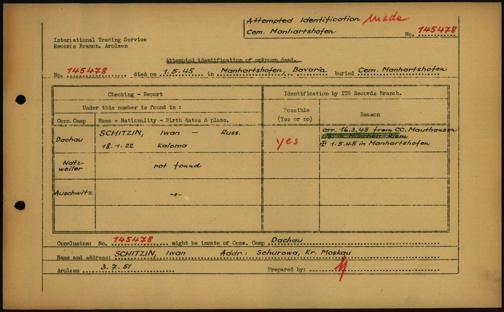 Attempted Identification Made
Cem. Manhartshofen No. 145478
International Tracing Service
Records Branch, Arolsen
Attempted identification of unknown dead.
No. 145478 died on 1.5.45 in Manhartshofen, Bavaria buried Cem. Manhartshofen
Checking - Report
Identification by ITS Records Branch.
Under this number is found in :
Possible
(Yes or no)
Reason
Conc.Camp Name - Nationality - Birth dates & place.
Dachau SCHITZIN, Iwan - Russ.
18.1.22 Koloma
yes
arr. 16.3.45 from CC. Mauthausen
1.5.45 in Manhartshofen
Natz-
weiler
not found
Auschwitz -"-
Conclusion: No. 145478 might be inmate of Conc. Camp Dachau
Name and address: SCHITZIN, Iwan Addr.: Sehurowa, Kr. Moskau
Arolsen 3.7.51 Prepared by: